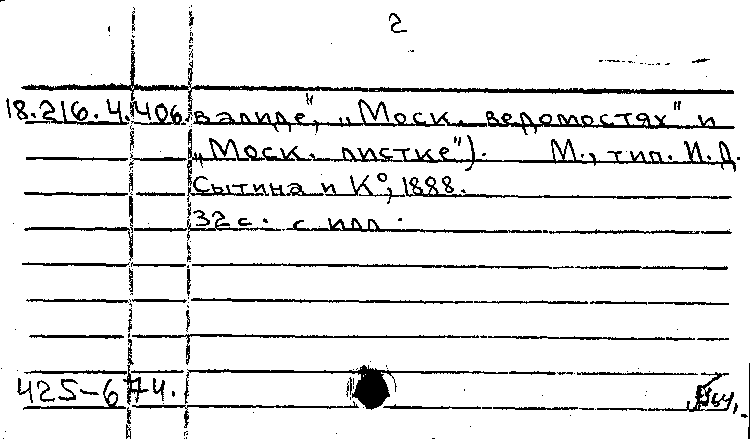 2
18.216.4.406. валиде", „Моск. ведомостях" и
„Моск. листке"). М., тип. И.Д.
Сытина и К°, 1888.
32 с. с илл.
425-674.